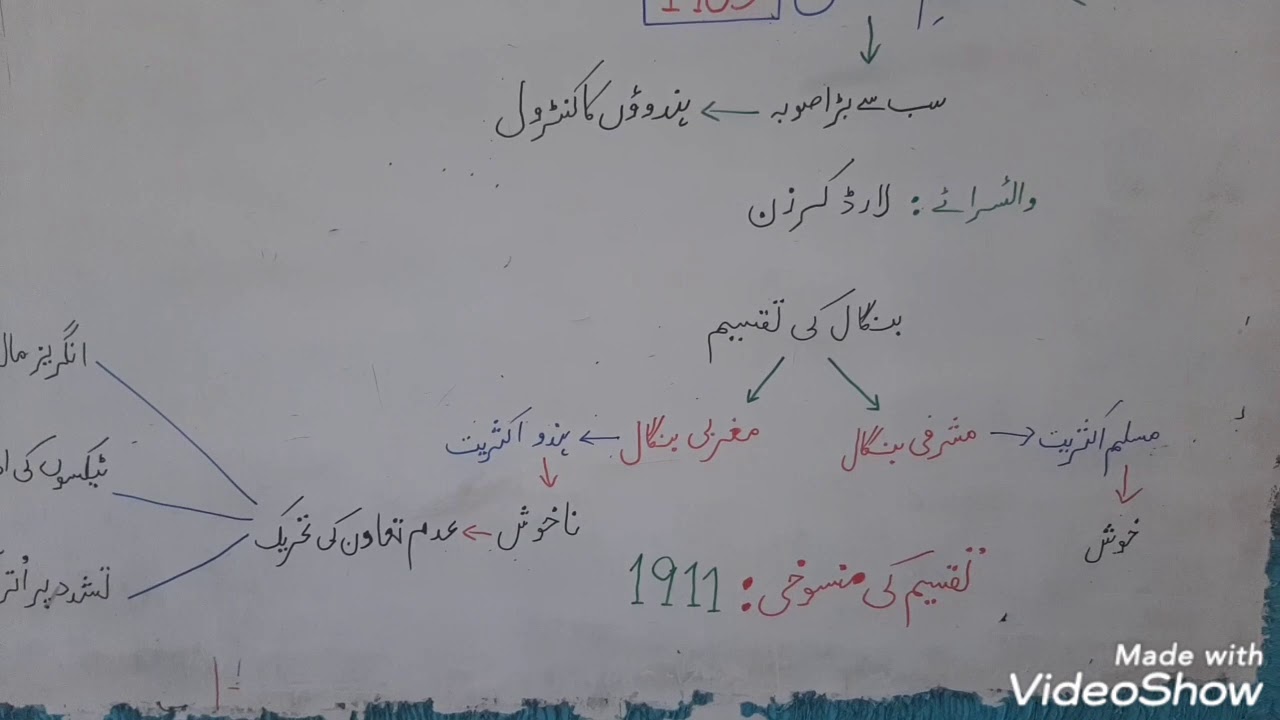 سب سے بڑا صوبہ ← ہندوؤں کا کنٹرول
وائسرائے : لارڈ کرزن
بنگال کی تقسیم
مسلم اکثریت → مشرقی بنگال
مغربی بنگال ← ہندو اکثریت
خوش
ناخوش ← عدم تعاون کی تحریک
انگریز مال
ٹیکسوں کی
تشدد پر اُتر
تقسیم کی منسوخی : 1911
Made with
VideoShow